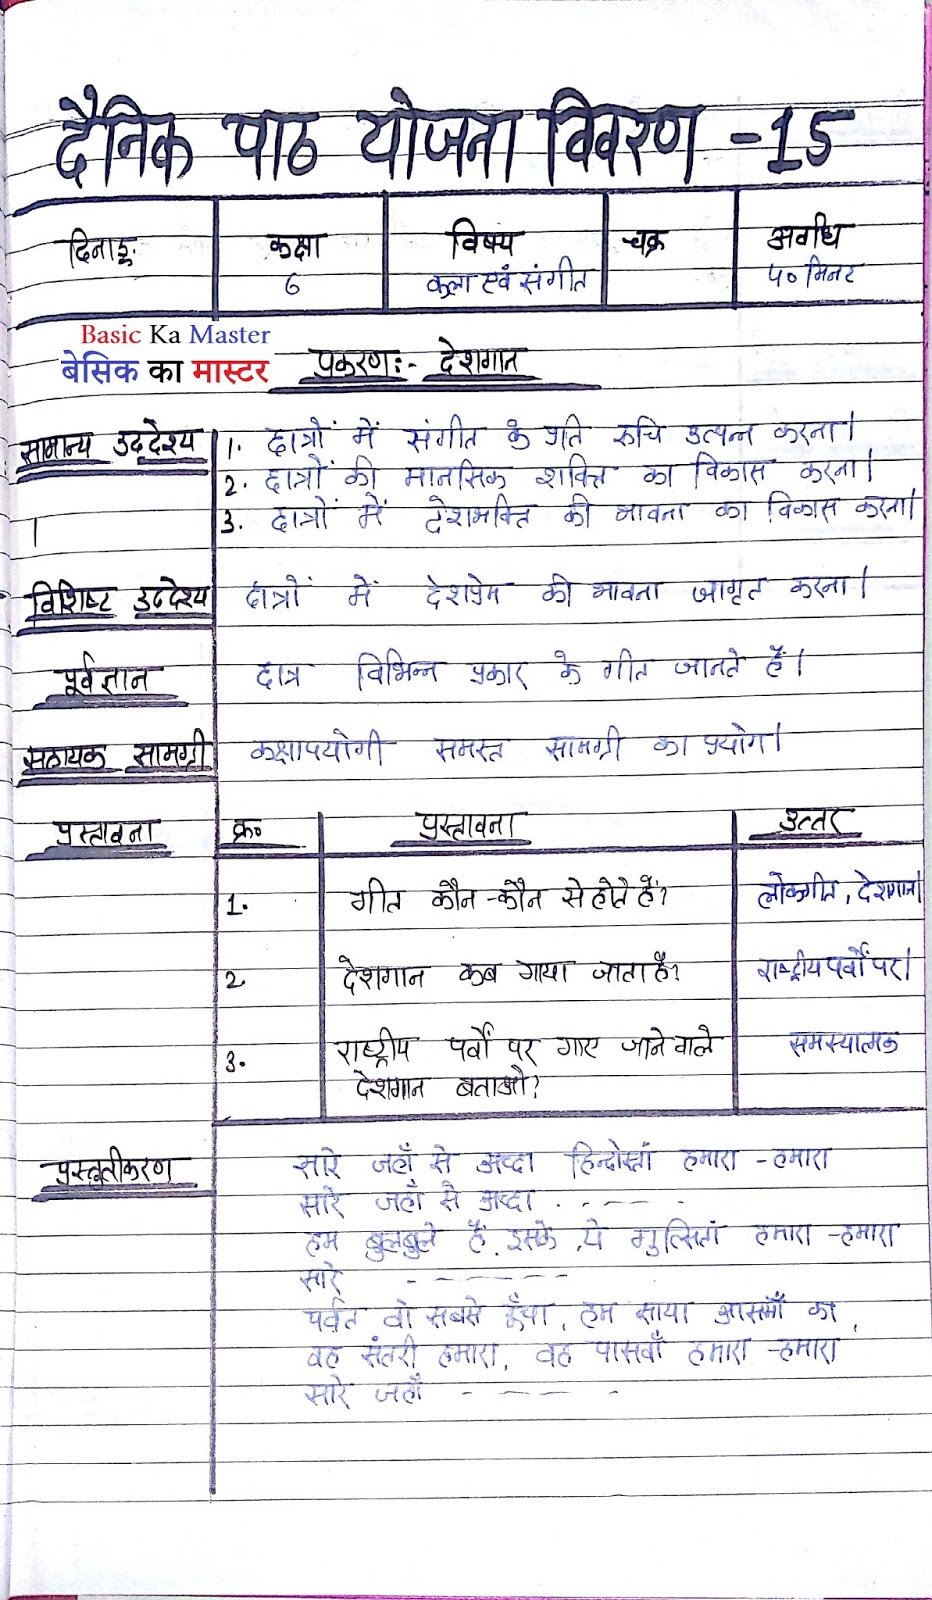 दैनिक पाठ योजना विवरण -15
दिनाङ्क कक्षा विषय चक्र अवधि
6 कला एवं संगीत ५० मिनट
Basic Ka Master
बेसिक का मास्टर
प्रकरण:- देशगान
सामान्य उद्देश्य 1. छात्रों में संगीत के प्रति रुचि उत्पन्न करना।
2. छात्रों की मानसिक शक्ति का विकास करना।
3. छात्रों में देशभक्ति की भावना का विकास करना।
विशिष्ट उद्देश्य छात्रों में देशप्रेम की भावना जागृत करना।
पूर्वज्ञान छात्र विभिन्न प्रकार के गीत जानते हैं।
सहायक सामग्री कक्षापयोगी समस्त सामग्री का प्रयोग।
प्रस्तावना क्र० प्रस्तावना उत्तर
1. गीत कौन-कौन से होते हैं? लोकगीत, देशगान।
2. देशगान कब गाया जाता है? राष्ट्रीय पर्वों पर।
3. राष्ट्रीय पर्वों पर गाए जाने वाले समस्यात्मक
देशगान बताओ?
प्रस्तुतीकरण सारे जहाँ से अच्छा हिन्दोस्तां हमारा -हमारा
सारे जहाँ से अच्छा . - - - - .
हम बुलबुले हैं, इसके, ये गुल्सितां हमारा -हमारा
सारे - - - - - -
पर्वत वो सबसे ऊँचा, हम साया आसमाँ का,
वह संतरी हमारा, वह पासवाँ हमारा -हमारा
सारे जहाँ - - - - - .